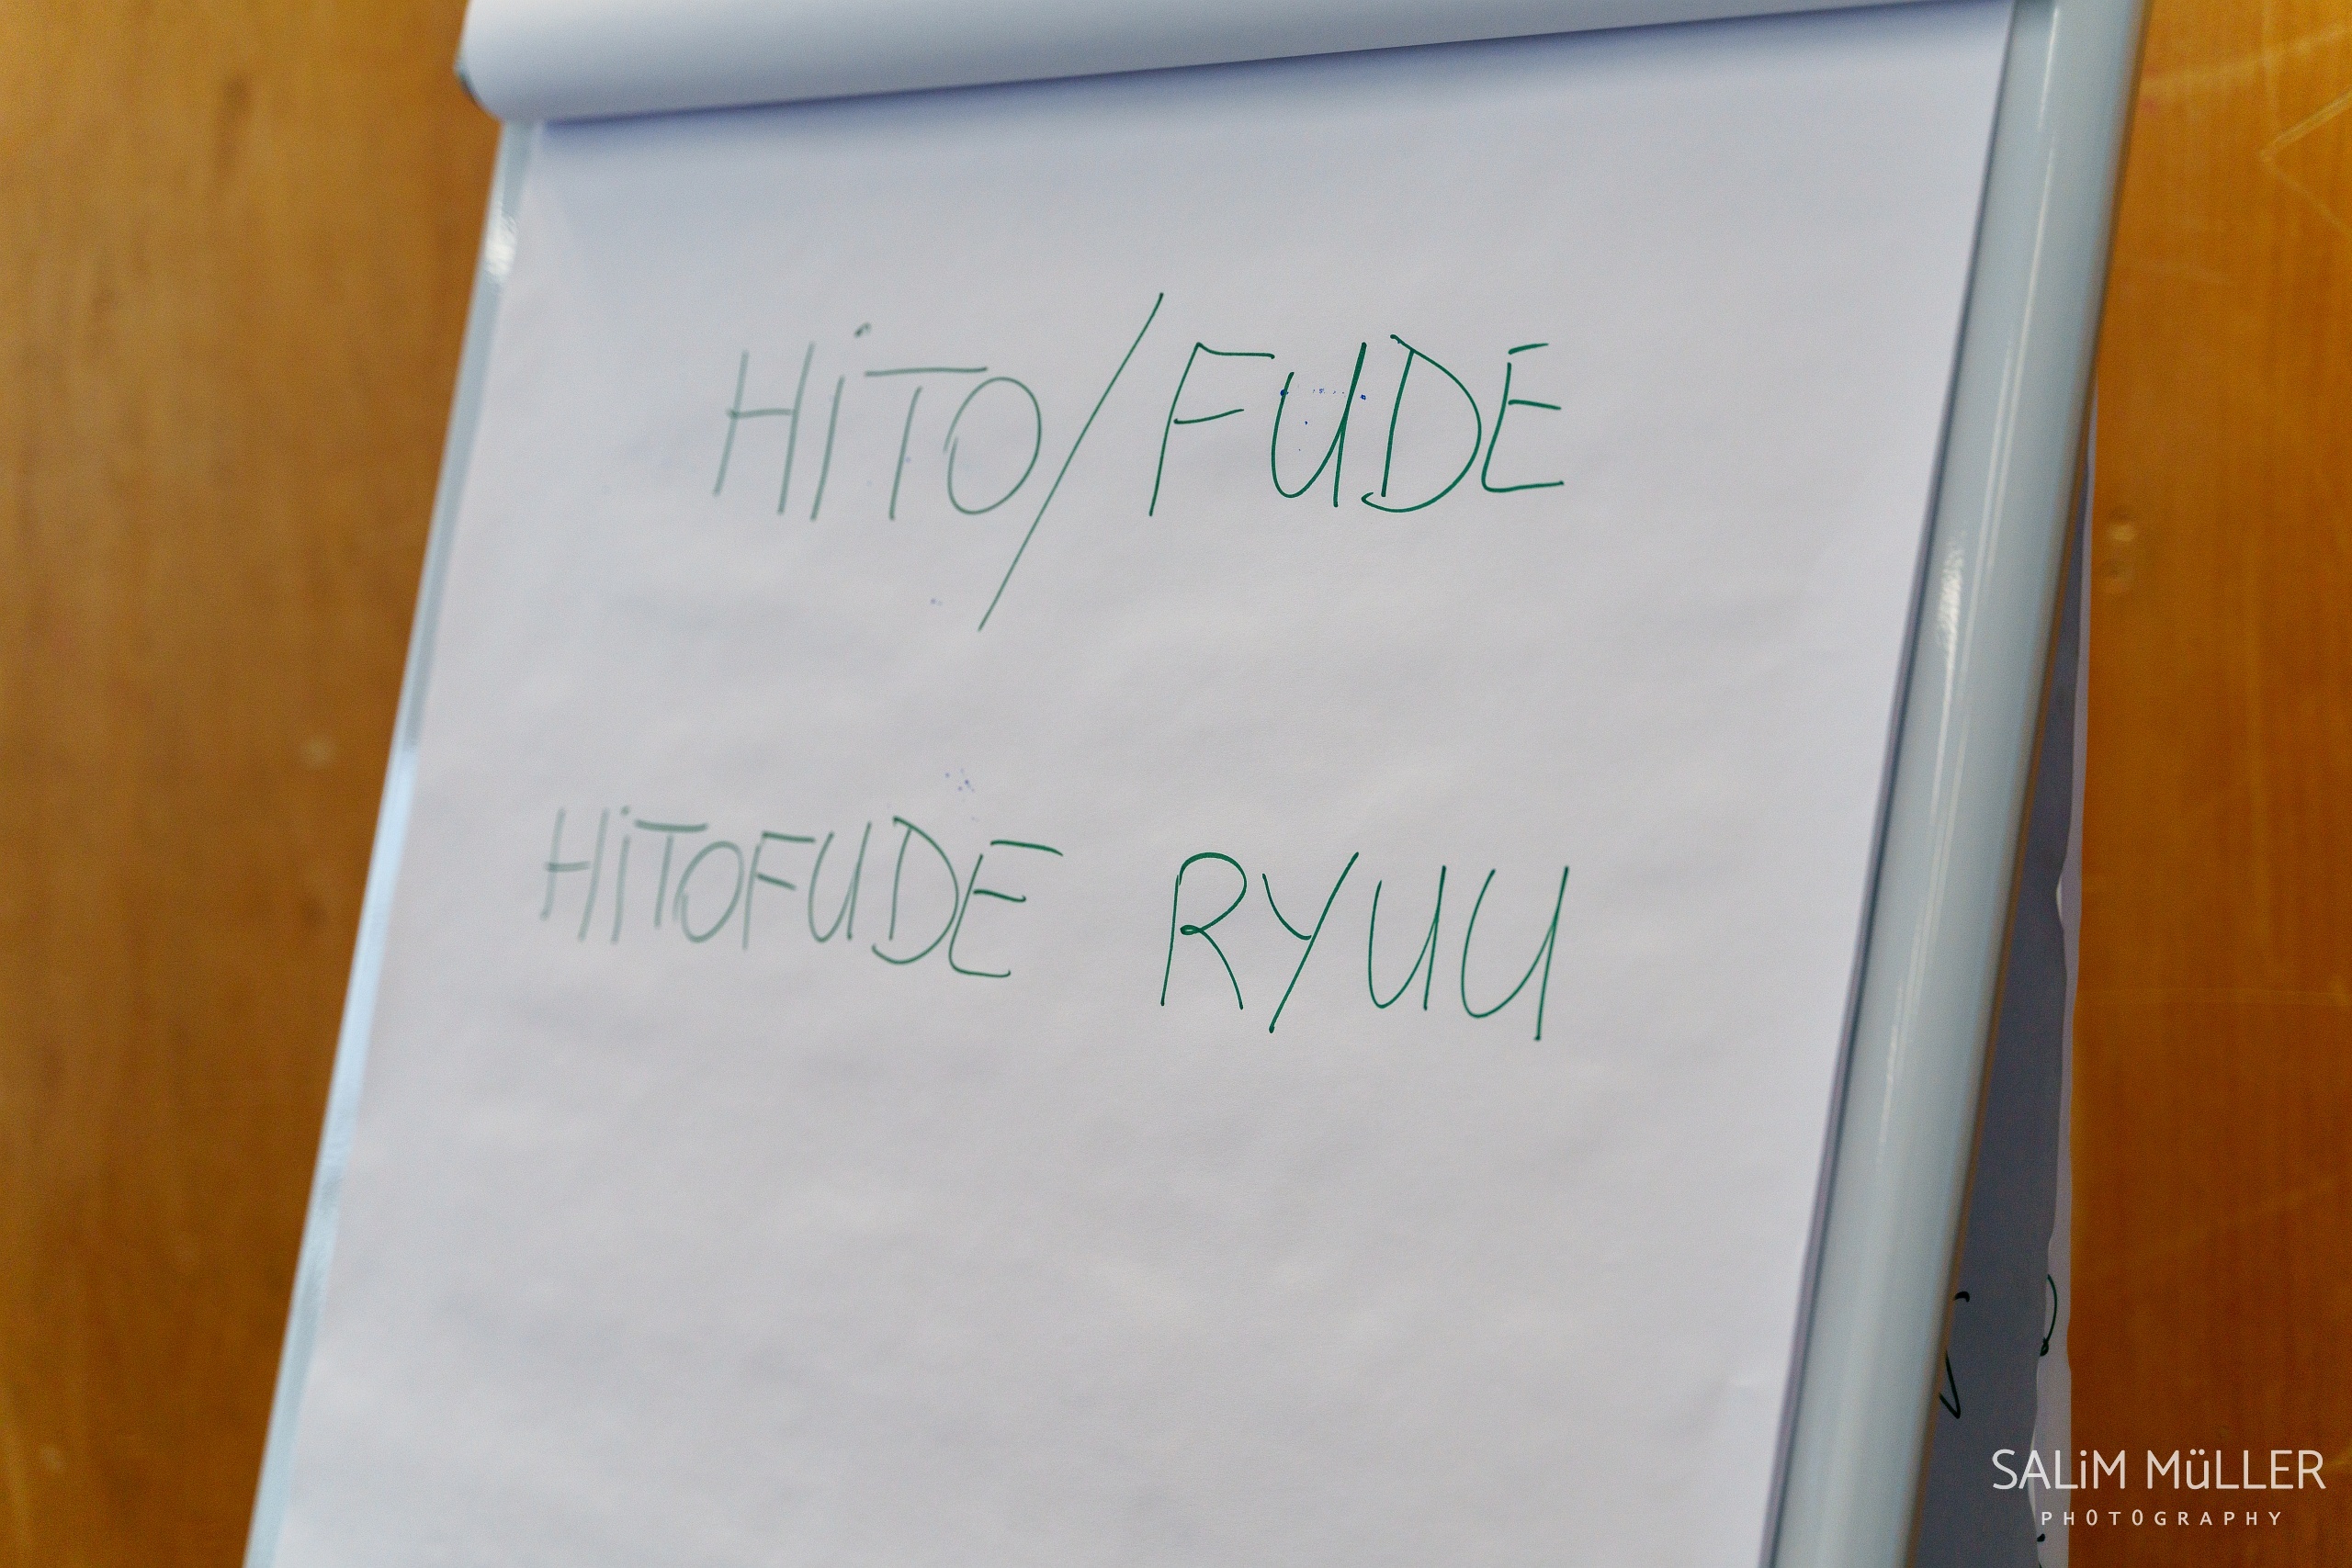 HiTO/FUDE
HiTOFUDE RYUU
SALiM MüLLER
PHOTOGRAPHY